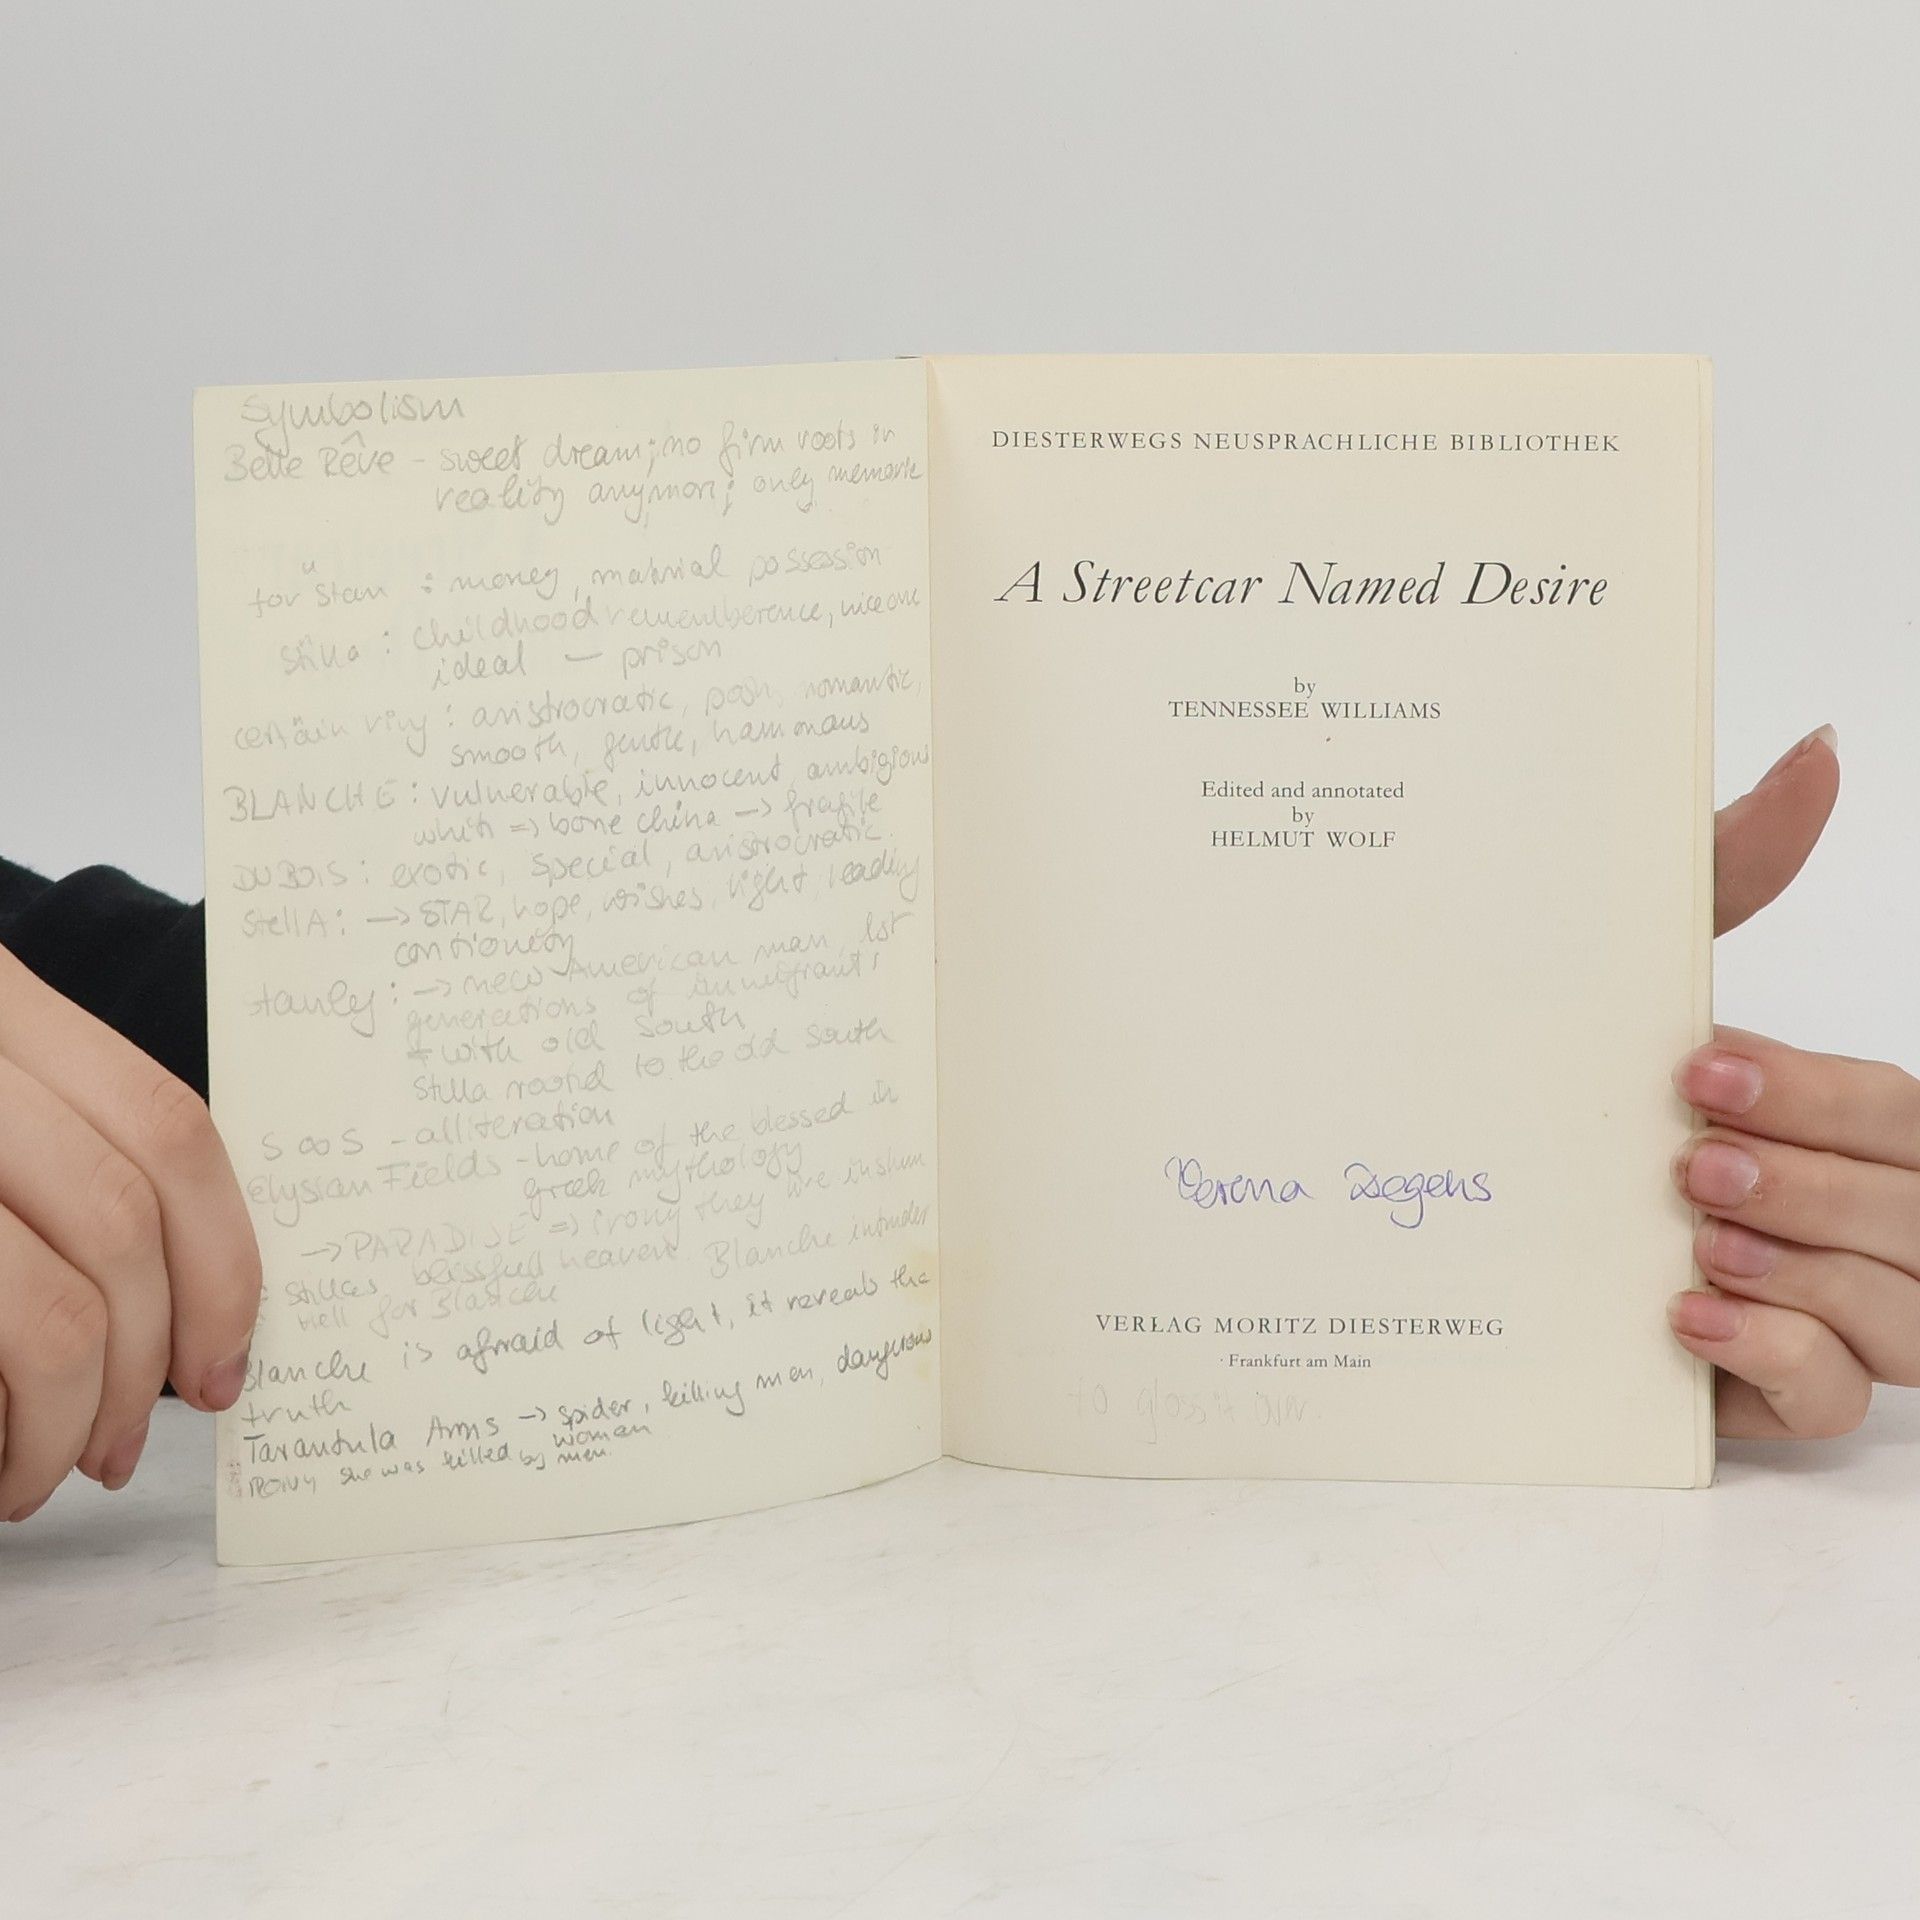 Symbolism
Belle Rêve - sweet dream; no firm roots in
reality anymore; only memorie
for Stan : money, material possession
" Stella : childhood rememberence, nice one
ideal — prison
certain ring : aristrocratic, posh, romantic,
smooth, gentle,
BLANCHE : vulnerable, innocent, ambigious
white => bone china -> fragile
DUBOIS : exotic, special, aristrocratic.
StellA : -> STAR, hope, wishes, light, leading
Stanley : -> new American man, 1st
generations of immigrants
≠ with old South
Stella rooted to the old South
S ∞ S - alliteration
Elysian Fields - home of the blessed in
greek mythology
-> PARADISE => irony they live in slum
Stellas blissfull heaven. Blanche intruder
Hell for Blanche
Blanche is afraid of light, it reveals the
truth
Tarantula Arms -> spider, killing men, dangerous
woman
irony she was killed by men.
DIESTERWEGS NEUSPRACHLICHE BIBLIOTHEK
A Streetcar Named Desire
by
TENNESSEE WILLIAMS
Edited and annotated
by
HELMUT WOLF
Verena Degens
VERLAG MORITZ DIESTERWEG
Frankfurt am Main
to gloss it over